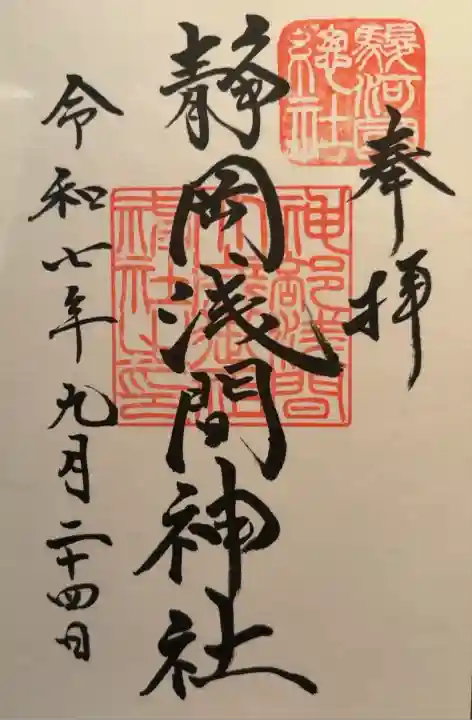 奉拝
駿河國
總社
静岡浅間神社
令和七年九月二十四日